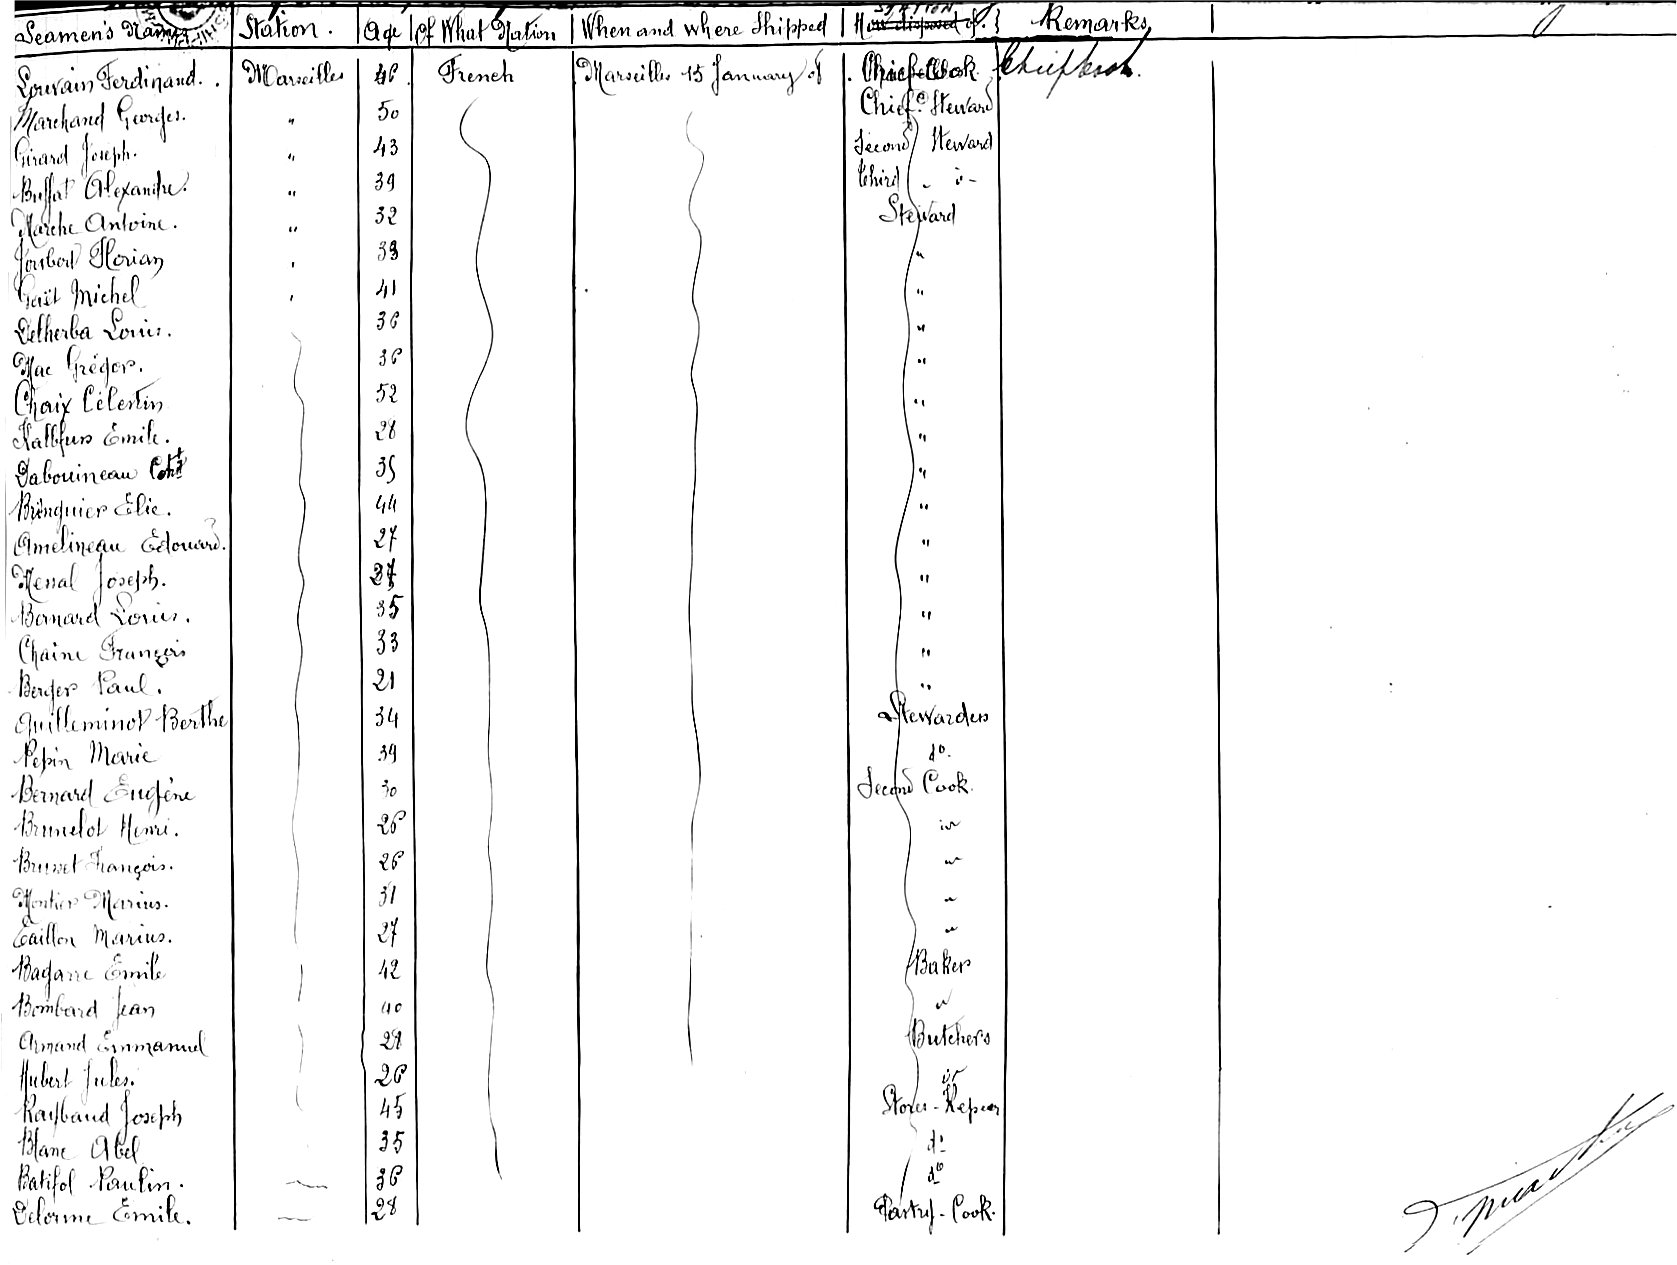 Seamen's Names Station. Age Of What Nation When and where Shipped STATION How disposed of. Remarks
Louvain Ferdinand. Marseilles 46 French Marseilles 15 January Chief Cook. Chief Cook.
Marchand Georges. " 50 Chief Steward
Girard Joseph. " 43 Second Steward
Buffat Alexandre. " 39 Third " "
Marche Antoine. " 32 Steward
Joubert Florian " 33 "
Gaït Michel " 41 "
Detherba Louis. 36 "
Mac Grégor. 36 "
Chaix Célestin 52 "
Kalbfuss Emile. 28 "
Dabouineau 35 "
Bringuier Elie. 44 "
Amelineau Edouard. 27 "
Menal Joseph. "
Bernard Louis. 35 "
Chaine François 33 "
Berger Paul. 21 "
Guilleminot Berthe 34 Stewardess
Pepin Marie 39 do.
Bernard Eugène 30 Second Cook.
Brunelot Henri. 26 "
Brusset François. 26 "
Montier Marius. 31 "
Taillon Marius. 27 "
Bagarre Emile 42 Baker
Bombard Jean 40 "
Armand Emmanuel 28 Butchers
Hubert Jules. 26 "
Raybaud Joseph 45 Stores-Kepeer
Blanc Abel 35 do
Batifol Paulin. 36 do
Delorme Emile. 28 Pastry-Cook.